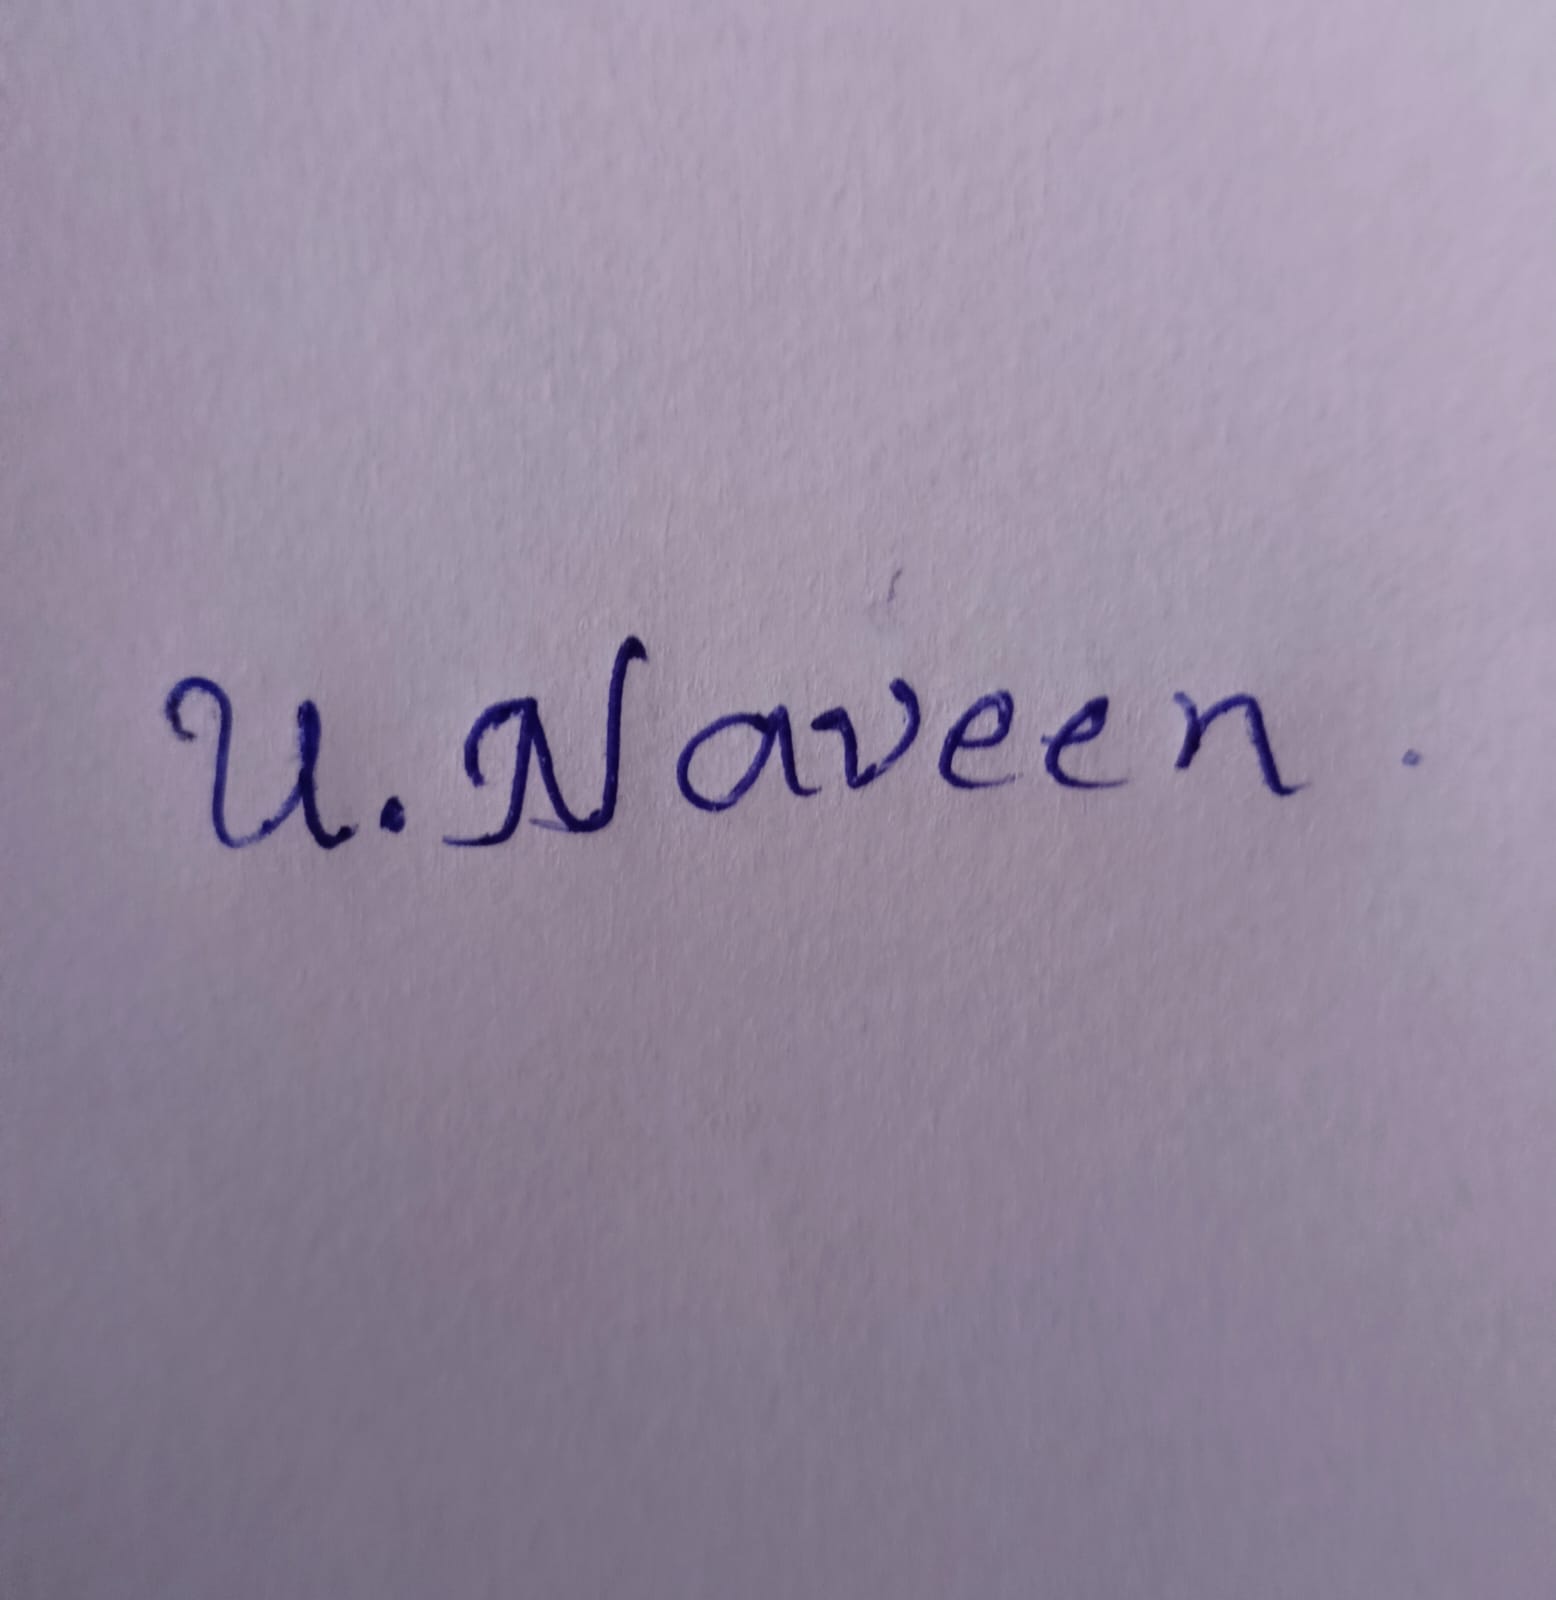 U. Naveen.